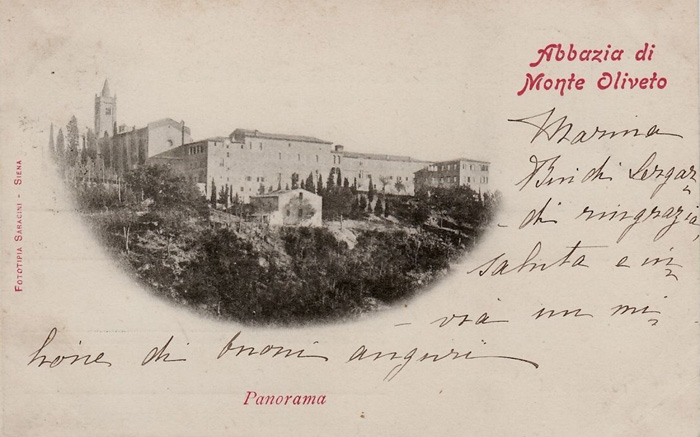 Abbazia di
Monte Oliveto
Marina
Bindi Sergar
- di ringrazia
saluta e in
- via un mi
lione di buoni auguri
Panorama
FOTOTIPIA SARACINI - SIENA